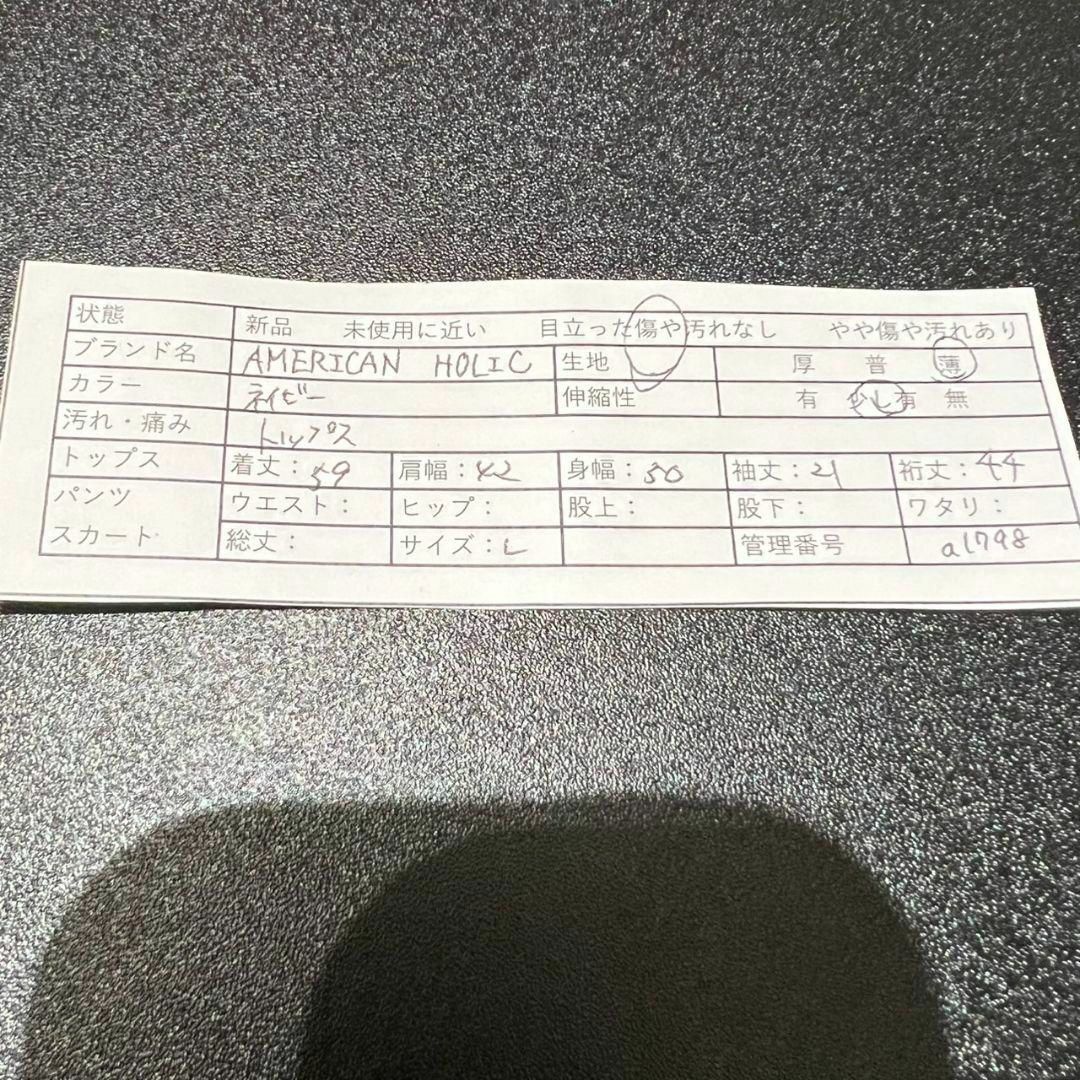 状態 新品 未使用に近い 目立った傷や汚れなし やや傷や汚れあり
ブランド名 AMERICAN HOLIC 生地 厚 普 薄
カラー ネイビー 伸縮性 有 少し有 無
汚れ・痛み トップス
トップス 着丈：59 肩幅：42 身幅：50 袖丈：21 裄丈：44
パンツ ウエスト： ヒップ： 股上： 股下： ワタリ：
スカート 総丈： サイズ：L 管理番号 a1798